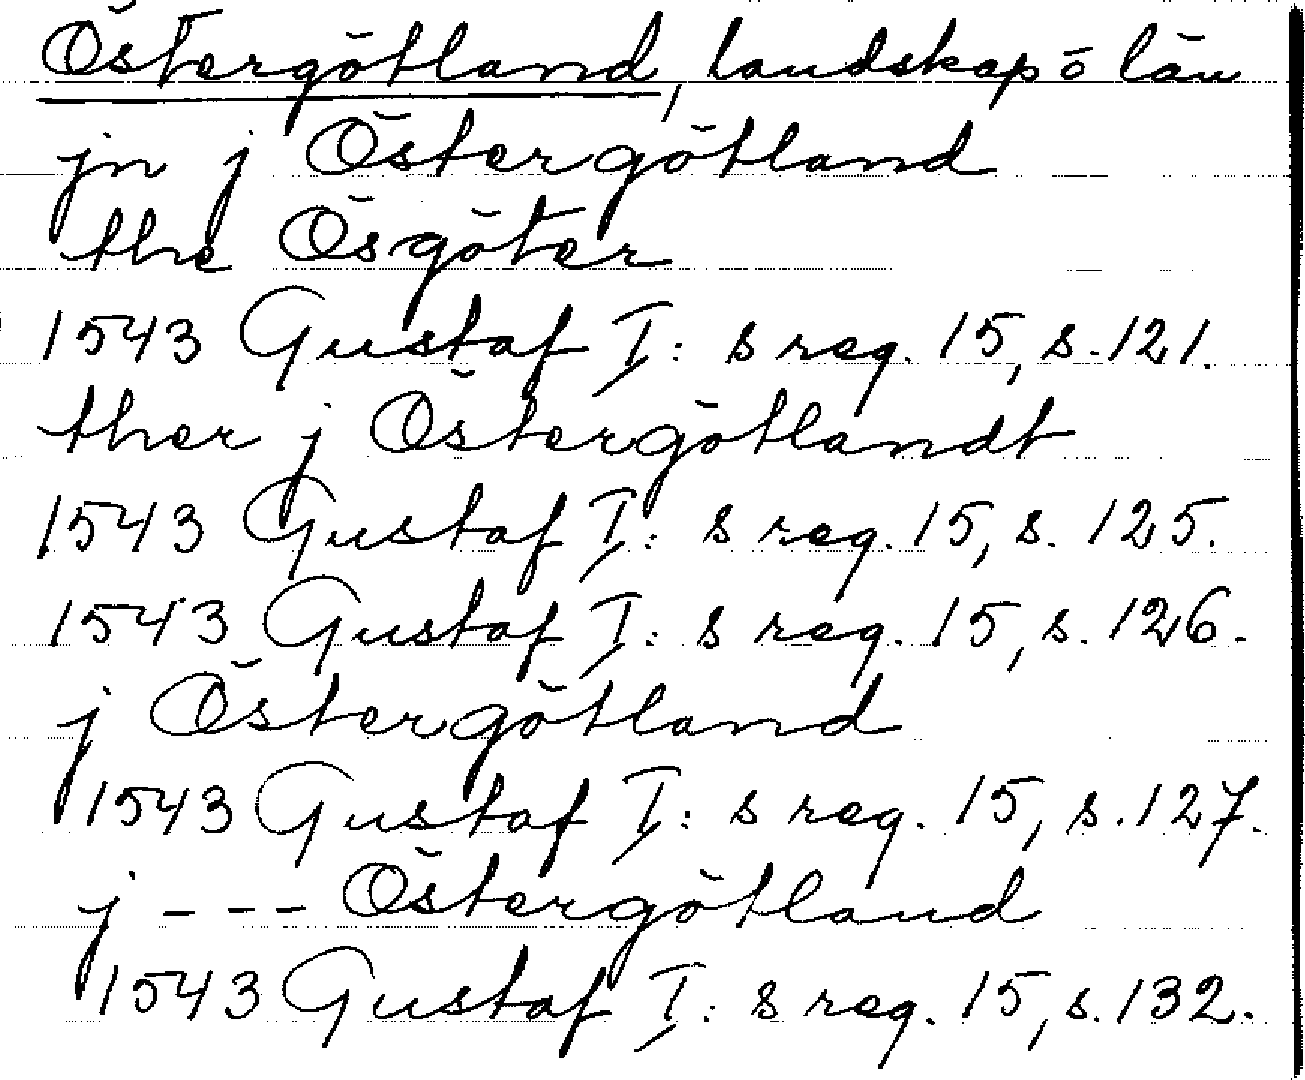 Östergötland, landskap o län
jn j Östergötland
the Ösgöter
1543 Gustaf I: s reg. 15, s. 121.
ther j Östergötlandt
1543 Gustaf I: s reg. 15, s. 125.
1543 Gustaf I: s reg. 15, s. 126.
j Östergötland
1543 Gustaf I: s reg. 15, s. 127.
j - - - Östergötland
1543 Gustaf I: s reg. 15, s. 132.